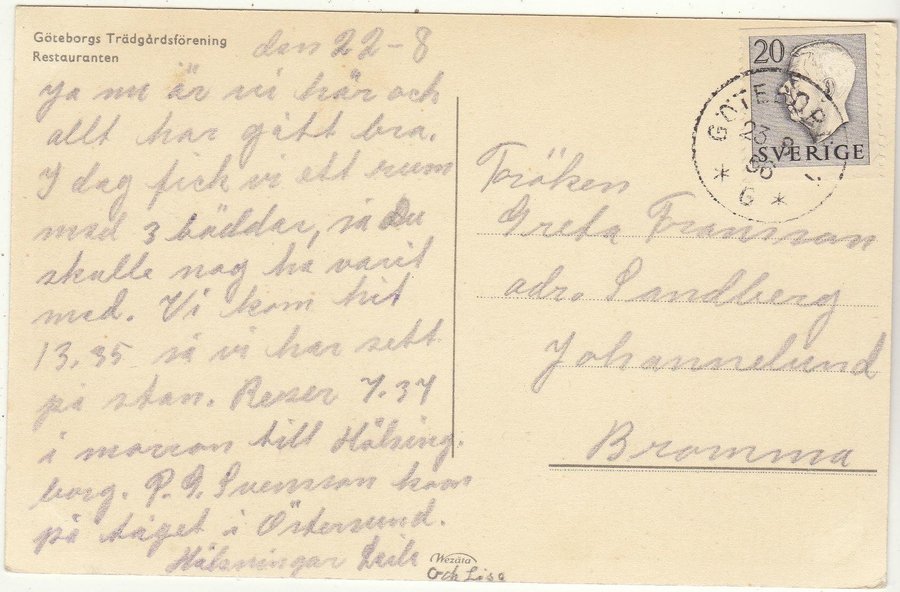 Göteborgs Trädgårdsförening
Restauranten
den 22-8
Ja nu är vi här och
allt har gått bra.
I dag fick vi ett rum
med 3 bäddar, så Du
skulle nog ha varit
med. Vi kom hit
13.35 så vi har sett
på stan. Reser 7.37
i morron till Hälsing-
borg. P. G. Svensson kom
på tåget i Östersund.
Hälsningar
och Lisa
Wezäta
20
SVERIGE
GÖTEBORG
23 8
6
Fröken
Greta Fransson
adr. Sandberg
Johannelund
Bromma